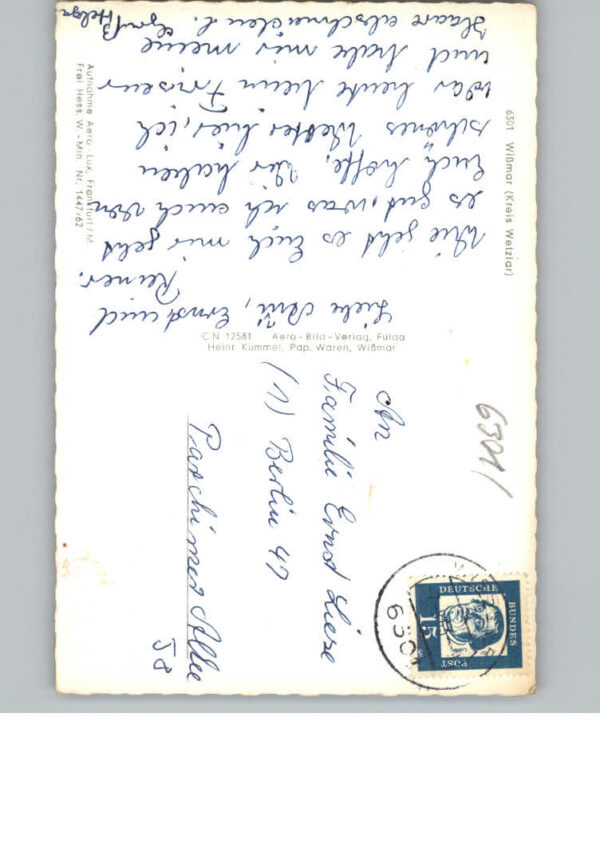 6301 Wißmar (Kreis Wetzlar)
Liebe Ernst und
Reiner.
Wie geht es Euch mir geht
es gut, was ich auch von
Euch hoffe. Wir haben
schönes Wetter hier, ich
war heute beim Friseur
und habe mir meine
Haare abschneiden l.
Gruß
Helga
Aufnahme Aero-Lux, Frankfurt/M.
Frei Hess. W.-Min. Nr. 1447/62
C.N 12581 Aero-Bild-Verlag, Fulda
Heinr. Kümmel, Pap. Waren, Wißmar
An
Familie Ernst Liese
(1) Berlin 47
Parchimer Allee
58
6301/
DEUTSCHE
BUNDES
POST
15
6301